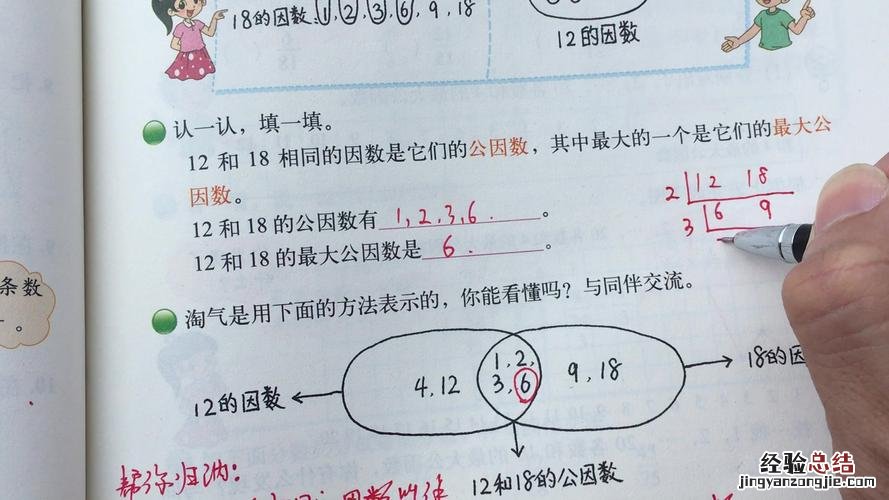 18的因数:1,2,3,6,9,18
12的因数
认一认，填一填。
12 和 18 相同的因数是它们的公因数，其中最大的一个是它们的最大公
因数。
12 和 18 的公因数有 1,2,3,6 。
12 和 18 的最大公因数是 6 。
2 12 18
3 6 9
条数
。
淘气是用下面的方法表示的，你能看懂吗？与同伴交流。
4,12
1,2,
3,6
9,18
12的因数
18的因
12和18的公因数
归纳:
经验总结
jingyanzongjie.com